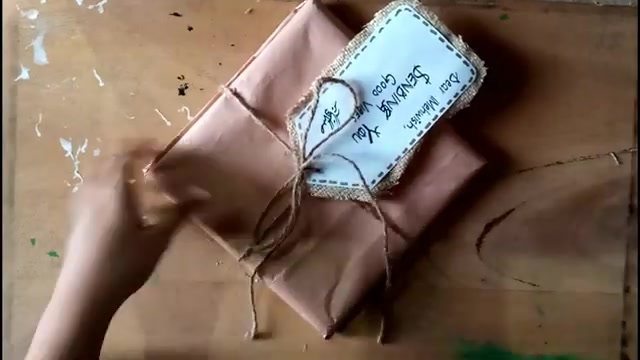 Dear Mehwish,
SENDING YOU
GOOD VIBES